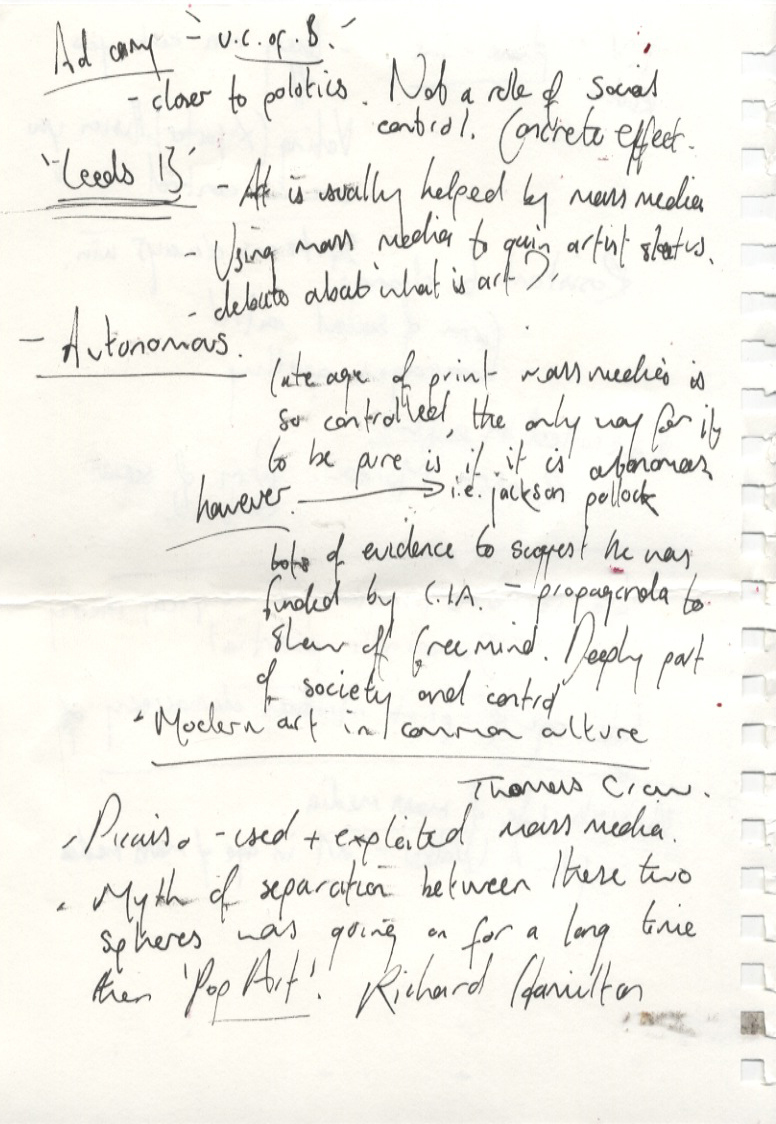 Ad - U.C. of B.
- closer to polotics. Not a role of social
control. Concrete effect.
'Leeds 13' - Art is usually helped by mass media
- Using mass media to gain artist status.
- debate about 'what is art'?
- Autonomous.
late age of print mass media is
so controlled, the only way for it
to be pure is if it is autonomous
however → i.e. jackson pollock
lots of evidence to suggest he was
funded by C.I.A. - propaganda to
show off free mind. Deeply part
of society and control
'Modern art in common culture
Thomas Crow.
Picaiso - used + exploited mass media.
Myth of separation between these two
spheres was going on for a long time
then 'Pop Art'. Richard Hamilton